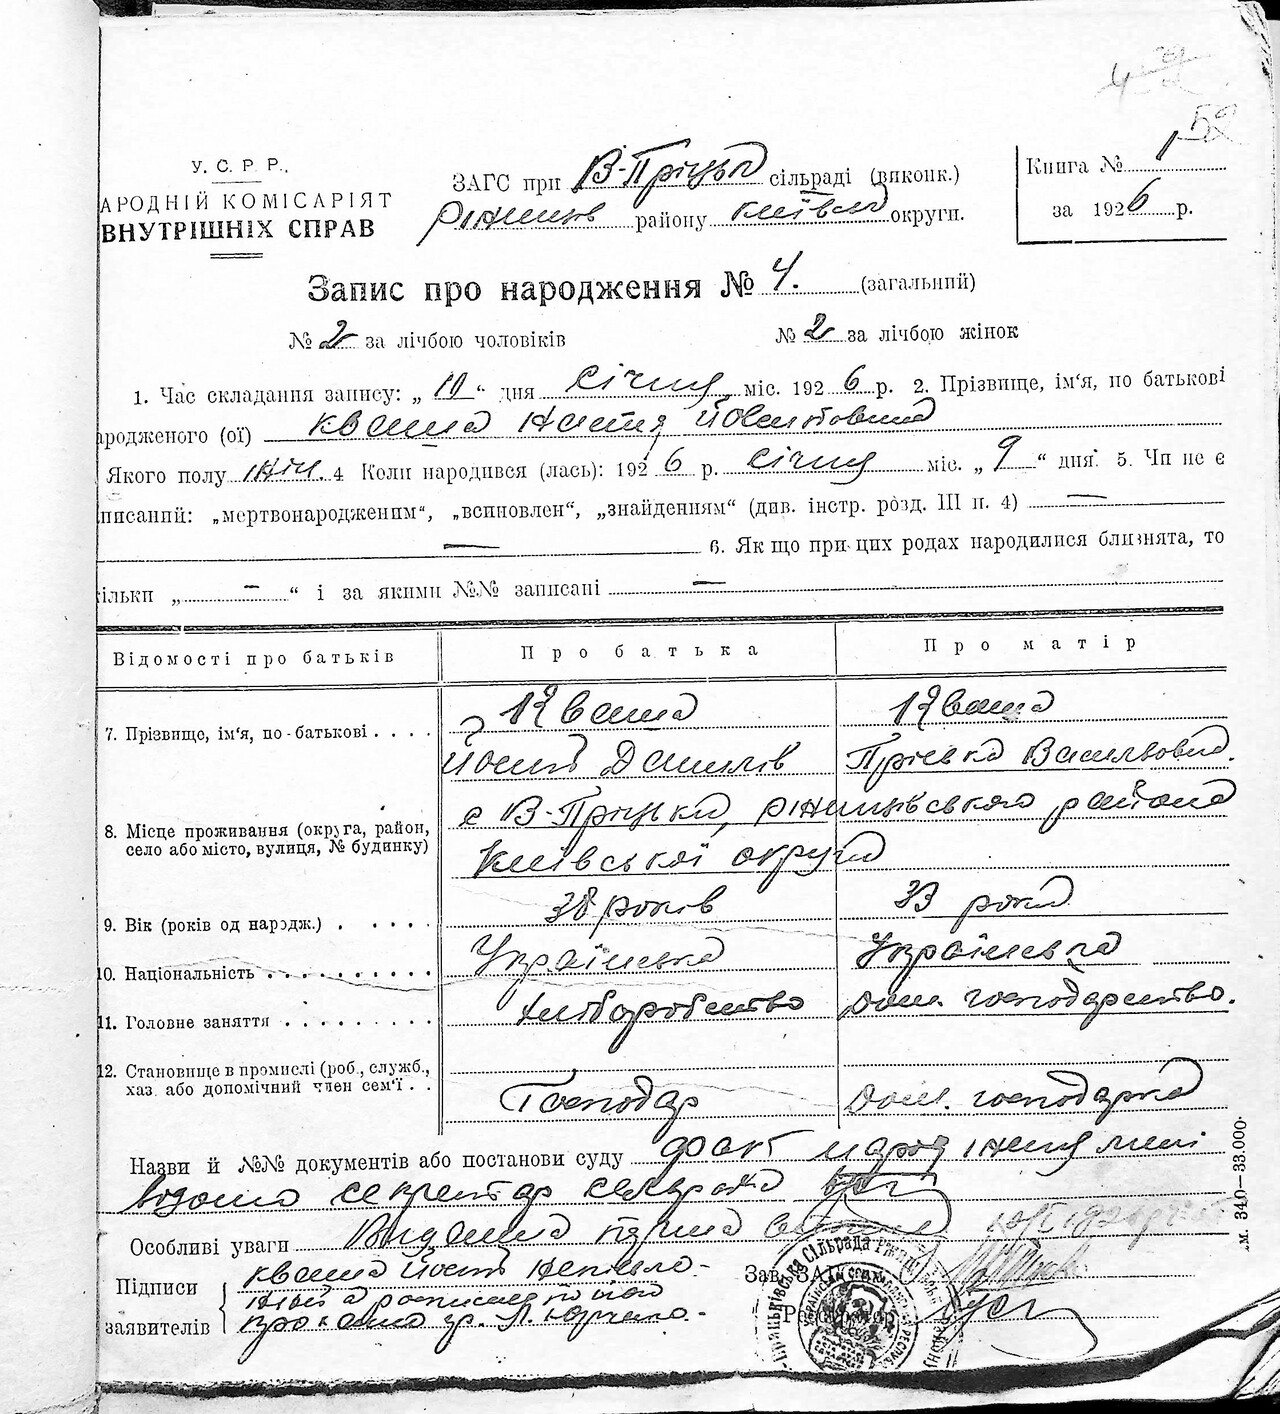 52
У. С. Р. Р.
АРОДНІЙ КОМІСАРІЯТ
ВНУТРІШНІХ СПРАВ
ЗАГС при В-Пріцьк сільраді (виконк.)
району Київськ округи.
Книга № 1
за 1926 р.
Запис про народження № 4. (загальний)
№ 2 за лічбою чоловіків № 2 за лічбою жінок
1. Час складання запису: „ 10 “ дня Січня міс. 1926 р. 2. Прізвище, ім'я, по батькові
ародженого (ої) Кваша Настя Йосиповна
Якого полу жін. 4 Коли народився (лась): 1926 р. Січня міс. „ 9 “ дня. 5. Чи не є
писаний: „мертвонародженим“, „всиновлен“, „знайденям“ (див. інстр. розд. III п. 4) —
— 6. Як що при цих родах народилися близнята, то
ільки „ — “ і за якими №№ записані —
Відомості про батьків Про батька Про матір
7. Прізвище, ім'я, по-батькові . . . . Кваша Кваша
Йосип Данилів Пріська Васильовна.
8. Місце проживання (округа, район, село або місто, вулиця, № будинку) с В-Прицьки, ржищівського района
Київської округи
9. Вік (років од народж.) . . . . . 38 років 33 роки
10. Національність . . . . . . . . . . Українська Українська
11. Головне заняття . . . . . . . . . хліборобство дом. господарство.
12. Становище в промислі (роб., служб., хаз. або допомічний член сем'ї . . Господар дом. господарка
Назви й №№ документів або постанови суду факт народження мені
відомо секретар сельради
Особливі уваги Видана
Підписи заявителів Кваша Йосип неписьменний а росписався по його
прозьбі гр.
Зав. ЗАГС
Реєстратор
м. 340—33.000.